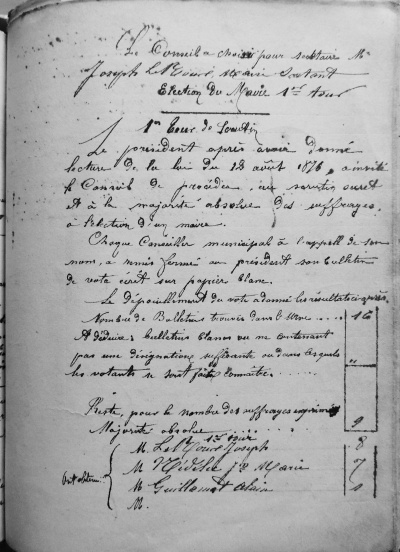 Le Conseil a choisi pour secrétaire M.
Joseph Le Dour, Maire Sortant
Election du Maire 1er tour
1er Tour de Scrutin
Le président après avoir donné
lecture de la loi du 12 août 1876, a invité
le Conseil de procéder, au scrutin secret
et à la majorité absolue des suffrages,
à l'election d'un maire.
Chaque Conseiller municipal à l'appell de son
nom, a remis fermé au président son bulletin
de vote écrit sur papier blanc.
Le dépouillement de vote a donné les résultats ci-après.
Nombre de Bulletins trouvés dans l'urne .... 16
A déduire; bulletins blancs ou ne contenant
pas une désignation suffisante ou dans lesquels
les votants se sont fait connaître ...... "
Reste, pour le nombre des suffrages exprimés
Majorité absolue ....... 9
1er tour
M. Joseph 8
Ont obtenu M Marie 7
M Guillamot Alain 1
M.